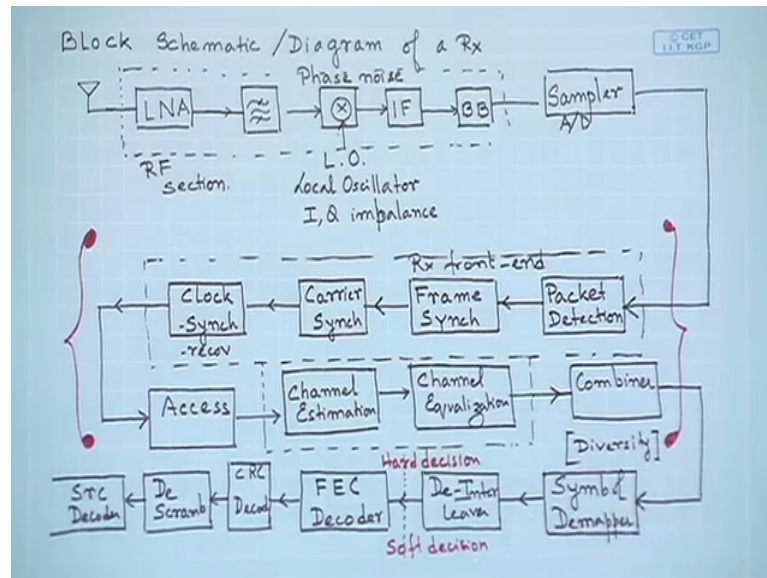 Block Schematic / Diagram of a Rx
© CET
I.I.T. KGP
Phase noise
LNA
IF
BB
Sampler
A/D
RF
section.
L.O.
Local Oscillator
I, Q imbalance
Rx front-end
Clock
-Synch
-recov
Carrier
Synch
Frame
Synch
Packet
Detection
Access
Channel
Estimation
Channel
Equalization
Combiner
[Diversity]
Hard decision
STC
Decoder
De
Scramb
CRC
Decod
FEC
Decoder
De-Inter
Leaver
Symbol
Demapper
Soft decision